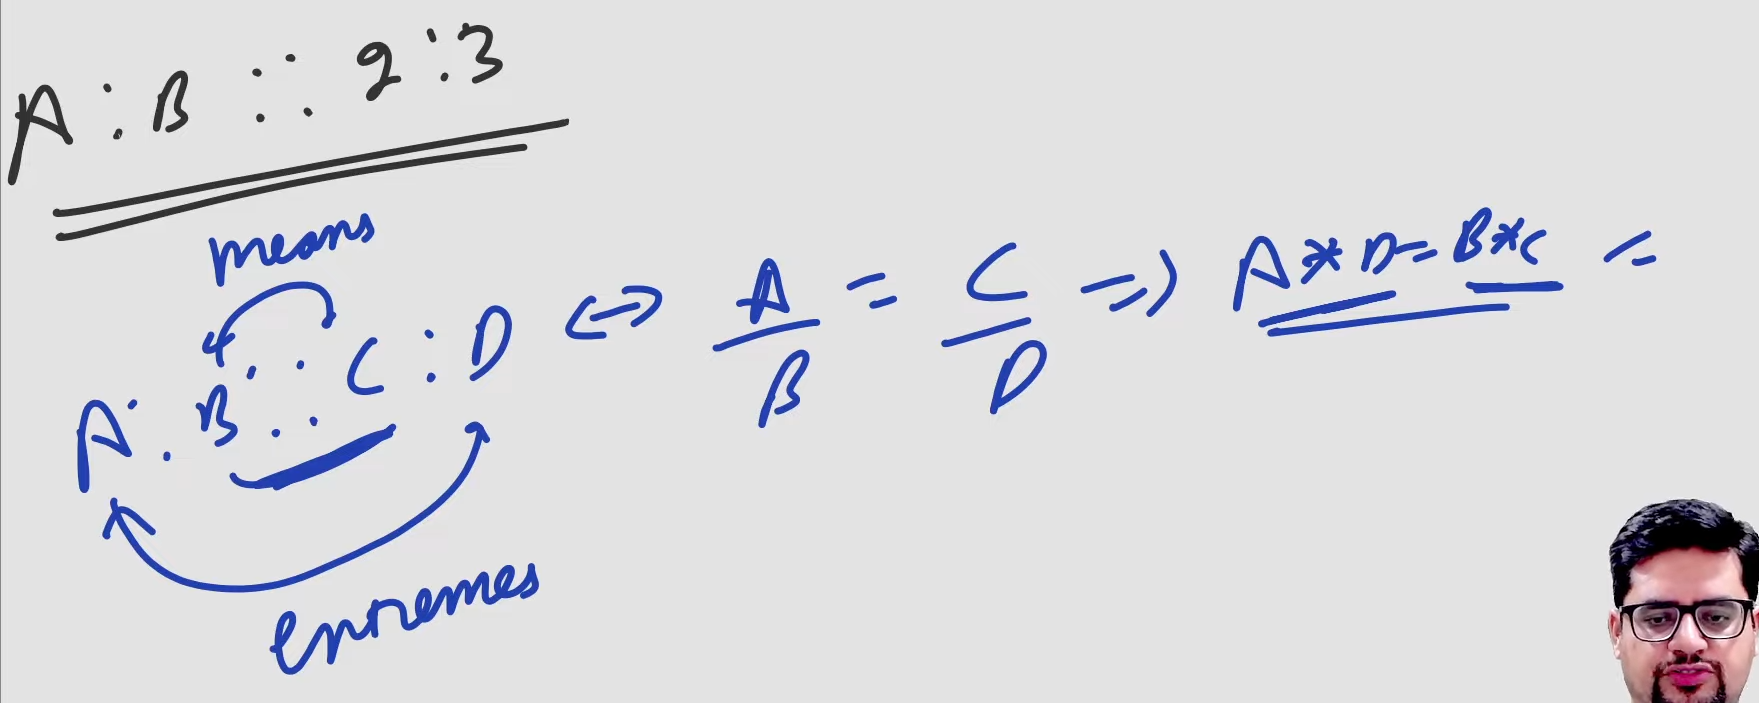 A : B :: 2 : 3
means
A : B :: C : D ⇔ A/B = C/D ⇒ A * D = B * C =
extremes